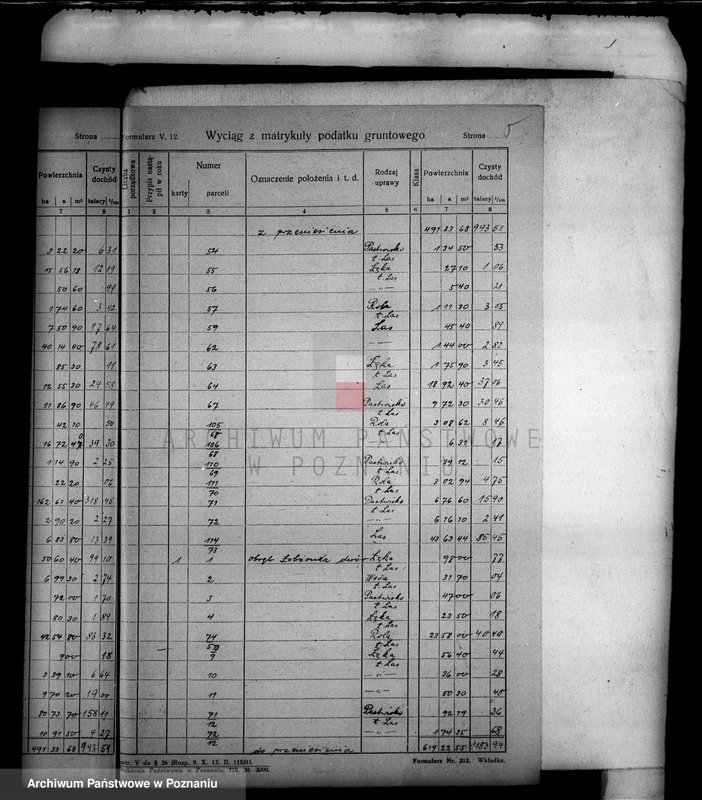 5
Strona
Formularz V. 12.
Wyciąg z matrykuły podatku gruntowego
Strona
Powierzchnia
Czysty dochód
Liczba porządkowa
Przypis nastąpił w roku
Numer
karty
parceli
Oznaczenie położenia i t. d.
Rodzaj uprawy
Klasa
Powierzchnia
Czysty dochód
ha a m² talary
ha a m² talary
7 8 1 2 3 4 5 6 7 8
z przeniesienia 491 33 68 943 51
3 22 20 6 31 54 Pastwisko 1 34 50 53
t. Las
15 56 18 12 19 55 Łąka 27 10 1 06
t. Las
50 60 99 56 —"— 5 40 21
1 74 60 3 92 57 Rola 1 11 30 3 05
t. Las
7 50 90 17 64 59 Las 45 40 89
40 14 40 78 61 62 —"— 1 44 00 2 82
85 30 11 63 Łąka 1 75 90 3 45
t. Las
12 55 30 24 58 64 Las 18 92 40 37 06
11 86 90 46 49 67 Pastwisko 9 72 30 30 46
t. Las
42 10 50 105/68 Rola 3 08 62 8 46
t. Las
16 72 47 39 30 106/68 6 31 17
1 14 90 2 25 110/69 Pastwisko 39 12 15
t. Las
22 20 06 111/70 Rola 3 02 94 4 75
t. Las
162 61 40 318 45 71 Pastwisko 6 76 60 15 90
t. Las
2 90 20 2 27 72 —"— 6 16 10 2 41
6 83 80 13 39 114/73 Las 43 63 44 85 45
50 60 40 99 10 1 1 obręb Łobżonka dwór Łąka 98 00 77
t. Las
6 99 30 2 74 2 Woda 31 70 04
t. Las
72 00 1 70 3 Pastwisko 47 00 06
t. Las
80 30 1 89 4 Łąka 23 50 18
t. Las
42 54 80 83 32 74/5 Rola 23 58 00 40 40
t. Las
9 00 18 9 Łąka 56 40 44
t. Las
3 39 10 6 64 10 —"— 36 00 28
9 70 20 19 00 11 —"— 50 80 40
80 73 70 158 11 71/12 Pastwisko 92 19 36
t. Las
10 91 50 4 27 72/12 —"— 1 74 35 68
491 33 68 943 51 do przeniesienia 619 22 55 1183 94
V do § 36 (Rozp. 9. X. 13. II. 11531).
Drukarnia Państwowa w Poznaniu, 718, 30. 3000.
Formularz Nr. 212. Wkładka.
ARCHIWUM PAŃSTWOWE
W POZNANIU
Archiwum Państwowe w Poznaniu